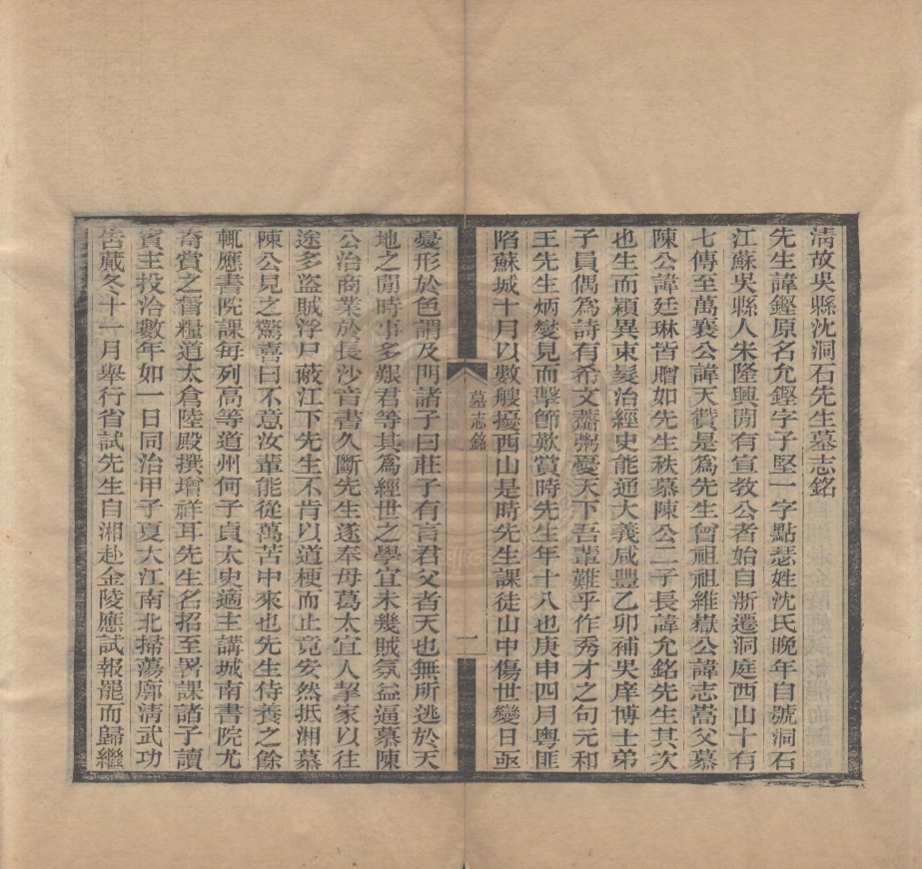 清故吳縣沈洞石先生墓志銘
先生諱鏗原名允鏗字子堅一字點瑟姓沈氏晚年自號洞石
江蘇吳縣人朱隆興閒有宣教公者始自浙遷洞庭西山十有
七傳至萬襄公諱天賛是爲先生曾祖祖維嶽公諱志嵩父慕
陳公諱廷琳皆贈如先生秩慕陳公二子長諱允銘先生其次
也生而穎異束髮治經史能通大義咸豐乙卯補吳庠博士弟
子員偶爲詩有希文虀粥憂天下吾輩難乎作秀才之句元和
王先生炳燮見而擊節歎賞時先生年十八也庚申四月粵匪
陷蘇城十月以數艘擾西山是時先生課徒山中傷世變日亟
墓志銘
一
憂形於色謂及門諸子曰莊子有言君父者天也無所逃於天
地之閒時事多艱君等其爲經世之學宜未幾賊氛益逼慕陳
公治商業於長沙音書久斷先生遂奉母葛太宜人挈家以往
途多盜賊浮尸蔽江下先生不肯以道梗而止竟安然抵湘慕
陳公見之驚喜曰不意汝輩能從萬苦中來也先生侍養之餘
輒應書院課每列高等道州何子貞太史適主講城南書院尤
奇賞之督糧道太倉陸殿撰增祥耳先生名招至署課諸子讀
賓主投洽數年如一日同治甲子夏大江南北掃蕩廓清武功
告蕆冬十一月舉行省試先生自湘赴金陵應試報罷而歸繼